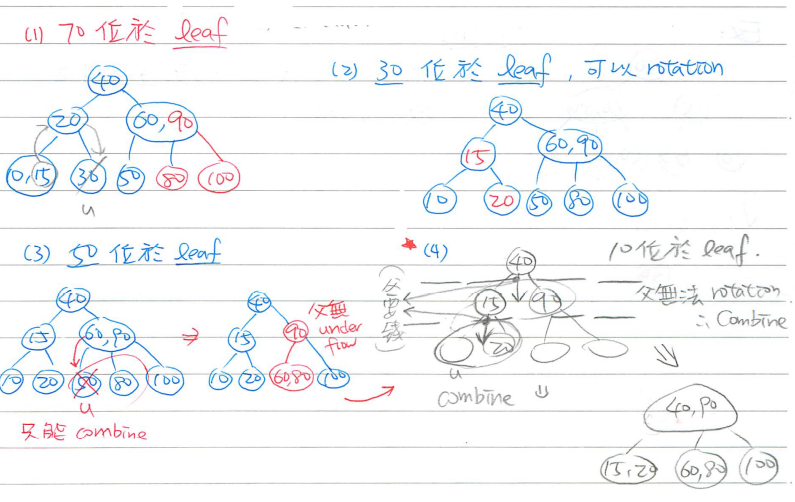 (1) 70 位於 leaf
40
20
60,90
10,15
30
50
80
100
u
(2) 30 位於 leaf,可以 rotation
40
15
60,90
10
20
50
80
100
(3) 50 位於 leaf
40
15
60,90
10
20
50
80
100
u
只能 combine
⇒
40
15
90
10
20
60,80
100
父無
under
flow
★(4)
10 位於 leaf.
40
15
90
20
u
父無法 rotation
∴ Combine
combine
40,90
15,20
60,80
100